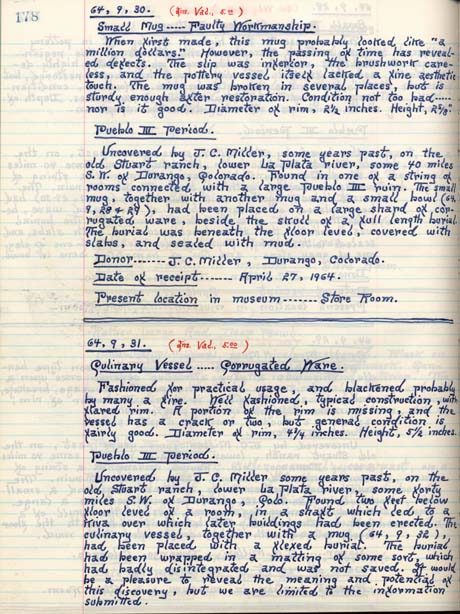 178
64, 9, 30. (Am. Val., 5.00)
Small Mug ---- Faulty Workmanship.
When first made, this mug probably looked like "a
million dollars." However, the passing of time has reveal-
ed defects. The slip was inferior, the brushwork care-
less, and the pottery vessel itself lacked a fine aesthetic
touch. The mug was broken in several places, but is
sturdy enough after restoration. Condition not too bad----
nor is it good. Diameter of rim, 2½ inches. Height,
Pueblo III Period.
Uncovered by J. C. Miller, some years past, on the
old Stuart ranch, lower La Plata river, some 40 miles
S.W. of Durango, Colorado. Found in one of a string of
rooms connected with a large Pueblo III ruin. The small
mug, together with another mug and a small bowl (64,
9, 28 & 29), had been placed on a large shard of cor-
rugated ware beside the skull of a full length burial.
The burial was beneath the floor level, covered with
slabs, and sealed with mud.
Donor------ J. C. Miller, Durango, Colorado.
Date of receipt------- April 27, 1964.
Present location in museum ------- Store Room.
64, 9, 31. (Am. Val., 5.00)
Culinary Vessel ..... Corrugated Ware.
Fashioned for practical usage, and blackened probably
by many a fire. Well fashioned, typical construction, with
flared rim. A portion of the rim is missing, and the
vessel has a crack or two, but general condition is
fairly good. Diameter of rim, 4¼ inches. Height, inches.
Pueblo III Period.
Uncovered by J. C. Miller some years past, on the
old Stuart ranch, lower La Plata river some forty
miles S.W. of Durango, Colo. Found two feet below
floor level of a room, in a shaft which led to a
kiva over which later buildings had been erected. The
culinary vessel, together with a mug (64, 9, 32),
had been placed with a flexed burial. The burial
had been wrapped in a matting of some sort, which
had badly disintegrated and was not saved. It would
be a pleasure to reveal the meaning and potential of
this discovery, but we are limited to the information
submitted.